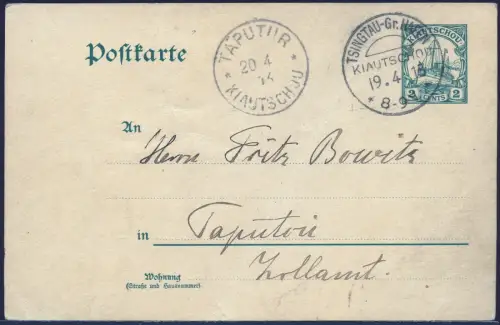 Postkarte
TAPUTUR
20 4
13
* KIAUTSCHOU *
TSINGTAU-Gr.
KIAUTSCHOU
19.4.13
* 8-9
KIAUTSCHOU
2 CENTS 2
An
Herrn Fritz Bowitz
in Taputou
Zollamt.
Wohnung
(Straße und Hausnummer)